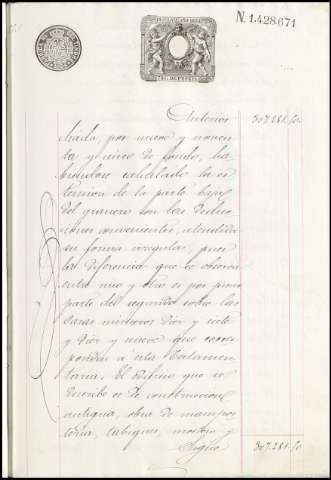 N. 1.428.671
Anterior 307.281.50
chada, por nueve y noven-
ta y cinco de fondo, ha-
biendose calculado la es-
tension de la parte baja
del granero con las deduc-
ciones convenientes, atendida
su forma irregular, pues
la diferencia que se observa
entre uno y otro es por pisar
parte del segundo sobre las
casas números diez y siete
y diez y nueve que corres-
ponden á esta Testamen-
taria. El edificio que se
describe es de construccion
antigua, obra de mampos-
teria, tabiques, morteros y
Sigue 307.281.50